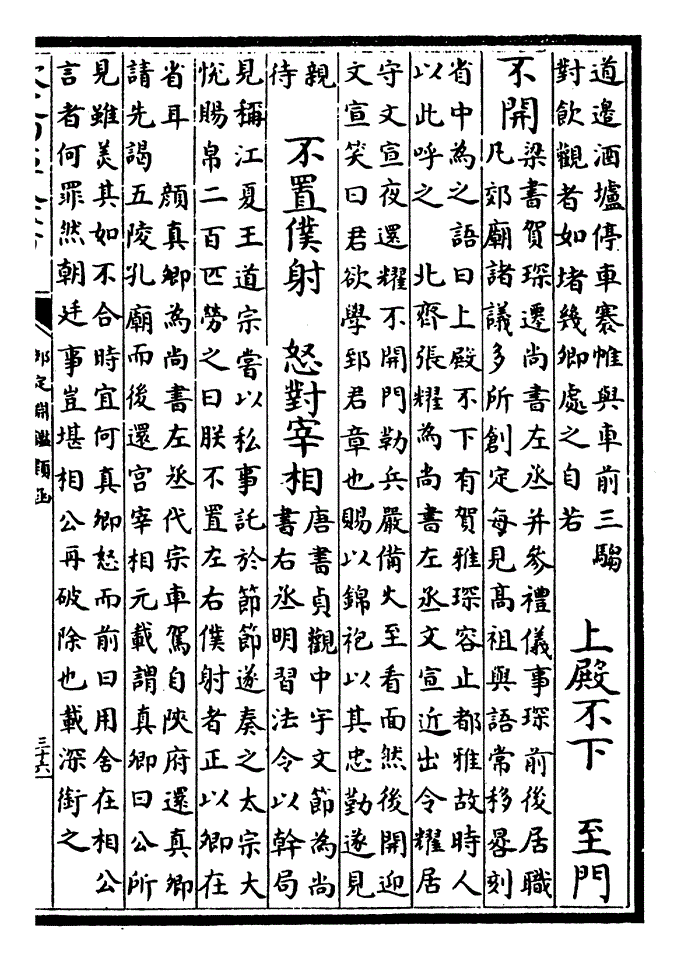 道邉酒壚停車褰帷與車前三騶
對飲觀者如堵幾卿處之自若
上殿不下 至門
不開
梁書賀琛遷尚書左丞并參禮儀事琛前後居職
凡郊廟諸議多所創定每見髙祖與語常移晷刻
省中為之語曰上殿不下有賀雅琛容止都雅故時人
以此呼之 北齊張耀為尚書左丞文宣近出令耀居
守文宣夜還耀不開門勒兵嚴備火至看面然後開迎
文宣笑曰君欲學郅君章也賜以錦袍以其忠勤遂見
親
待
不置僕射 怒對宰相
唐書貞觀中宇文節為尚
書右丞明習法令以幹局
見稱江夏王道宗嘗以私事託於節節遂奏之太宗大
恱賜帛二百匹勞之曰朕不置左右僕射者正以卿在
省耳 顔真卿為尚書左丞代宗車駕自陜府還真卿
請先謁五陵孔廟而後還宫宰相元載謂真卿曰公所
見雖美其如不合時宜何真卿怒而前曰用舍在相公
言者何罪然朝廷事豈堪相公再破除也載深銜之
御定淵鑑類函
三十六